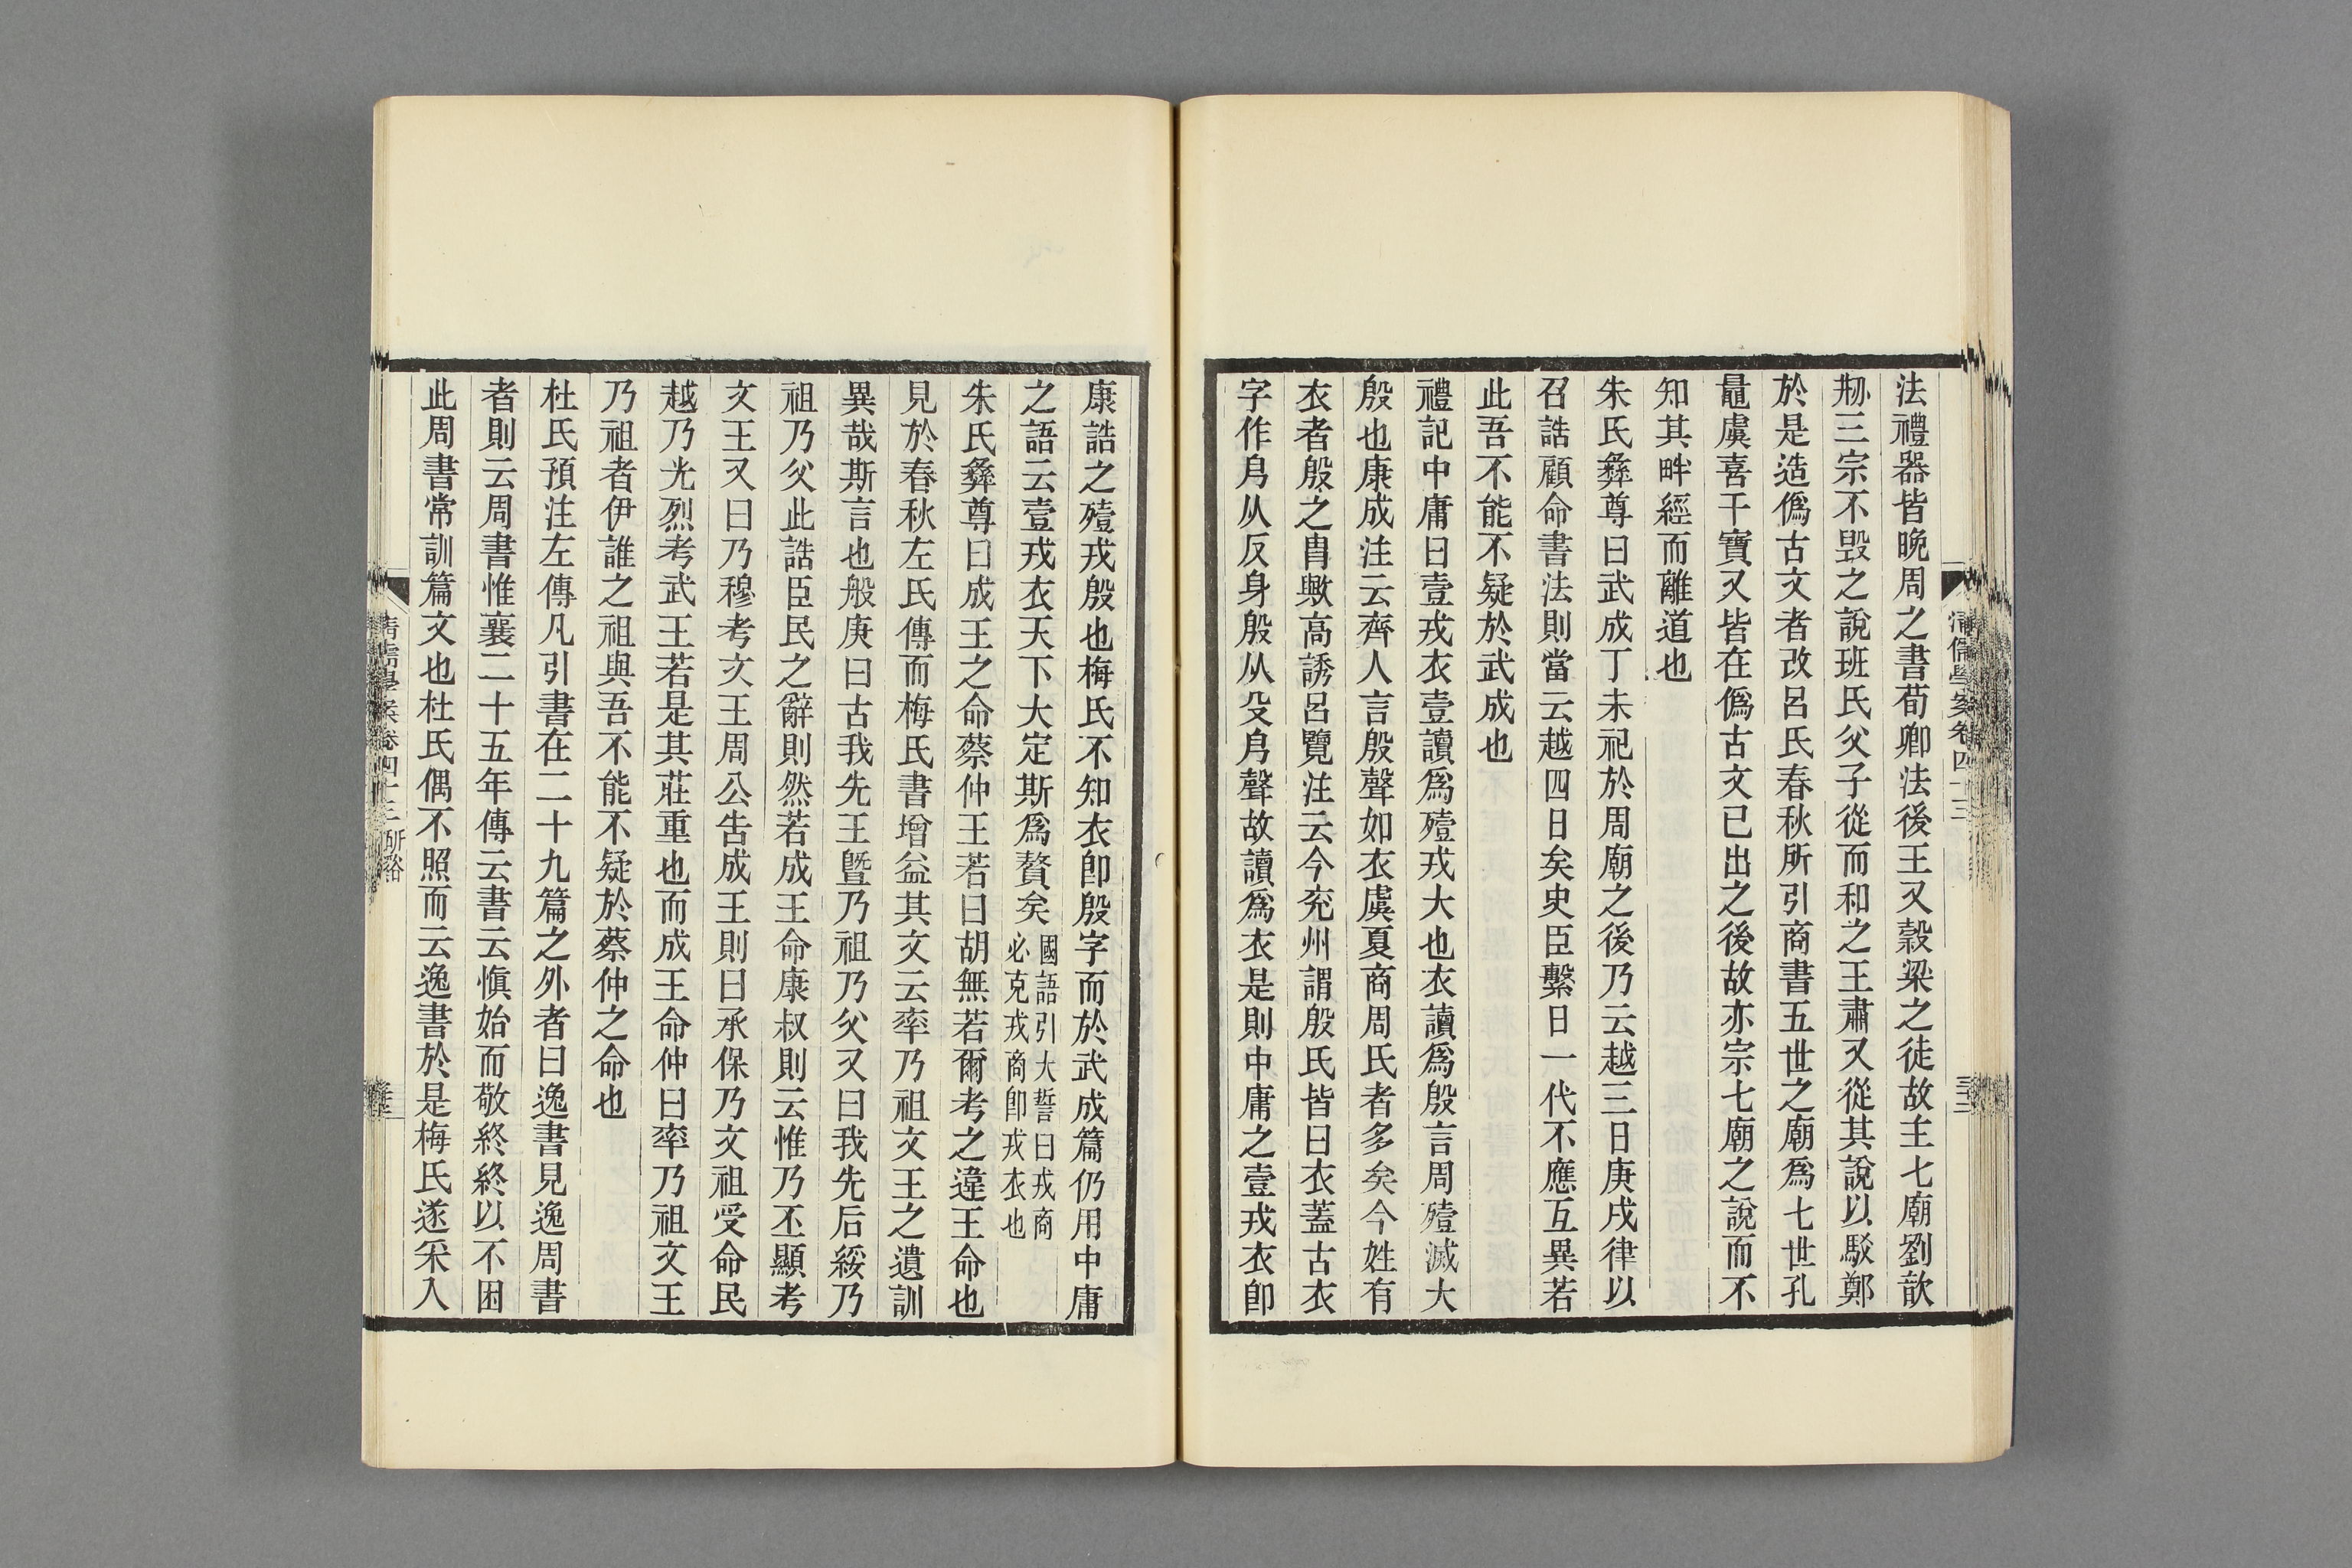 法禮器皆晚周之書荀卿法後王又穀梁之徒故主七廟劉歆
剏三宗不毀之說班氏父子從而和之王肅又從其說以駁鄭
於是造僞古文者改呂氏春秋所引商書五世之廟爲七世孔
鼂虞喜干寶又皆在僞古文已出之後故亦宗七廟之說而不
知其畔經而離道也
朱氏彝尊曰武成丁未祀於周廟之後乃云越三日庚戌律以
召誥顧命書法則當云越四日矣史臣繫日一代不應互異若
此吾不能不疑於武成也
禮記中庸曰壹戎衣壹讀爲殪戎大也衣讀爲殷言周殪滅大
殷也康成注云齊人言殷聲如衣虞夏商周氏者多矣今姓有
衣者殷之冑與高誘呂覽注云今兖州謂殷氏皆曰衣蓋古衣
字作㐆从反身殷从殳㐆聲故讀爲衣是則中庸之壹戎衣卽
清儒學案卷四十三
康誥之殪戎殷也梅氏不知衣卽殷字而於武成篇仍用中庸
之語云壹戎衣天下大定斯爲贅矣國語引大誓曰戎商必克戎商卽戎衣也
朱氏彝尊曰成王之命蔡仲王若曰胡無若爾考之違王命也
見於春秋左氏傳而梅氏書增益其文云率乃祖文王之遺訓
異哉斯言也般庚曰古我先王曁乃祖乃父又曰我先后綏乃
祖乃父此誥臣民之辭則然若成王命康叔則云惟乃丕顯考
文王又曰乃穆考文王周公告成王則曰承保乃文祖受命民
越乃光烈考武王若是其莊重也而成王命仲曰率乃祖文王
乃祖者伊誰之祖與吾不能不疑於蔡仲之命也
杜氏預注左傳凡引書在二十九篇之外者曰逸書見逸周書
者則云周書惟襄二十五年傳云書云愼始而敬終終以不困
此周書常訓篇文也杜氏偶不照而云逸書於是梅氏遂采入
清儒學案卷四十三 研谿